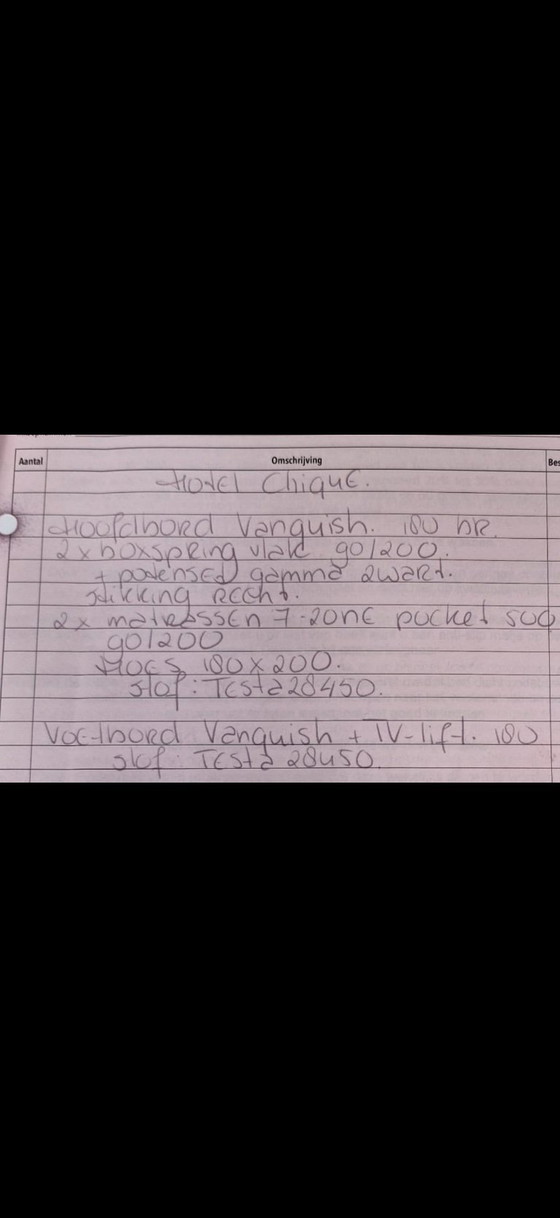 Aantal Omschrijving Bes
Hotel Chique.
Hoofdbord Vanquish. 180 br.
2x boxspring vlak 90/200.
+ potenset gamma zwart.
stikking Recht.
2x matrassen 7-zone pocket
90/200
Hoes 180x200.
stof: Testa 28450.
Voetbord Vanquish + TV-lift. 180
stof: Testa 28450.